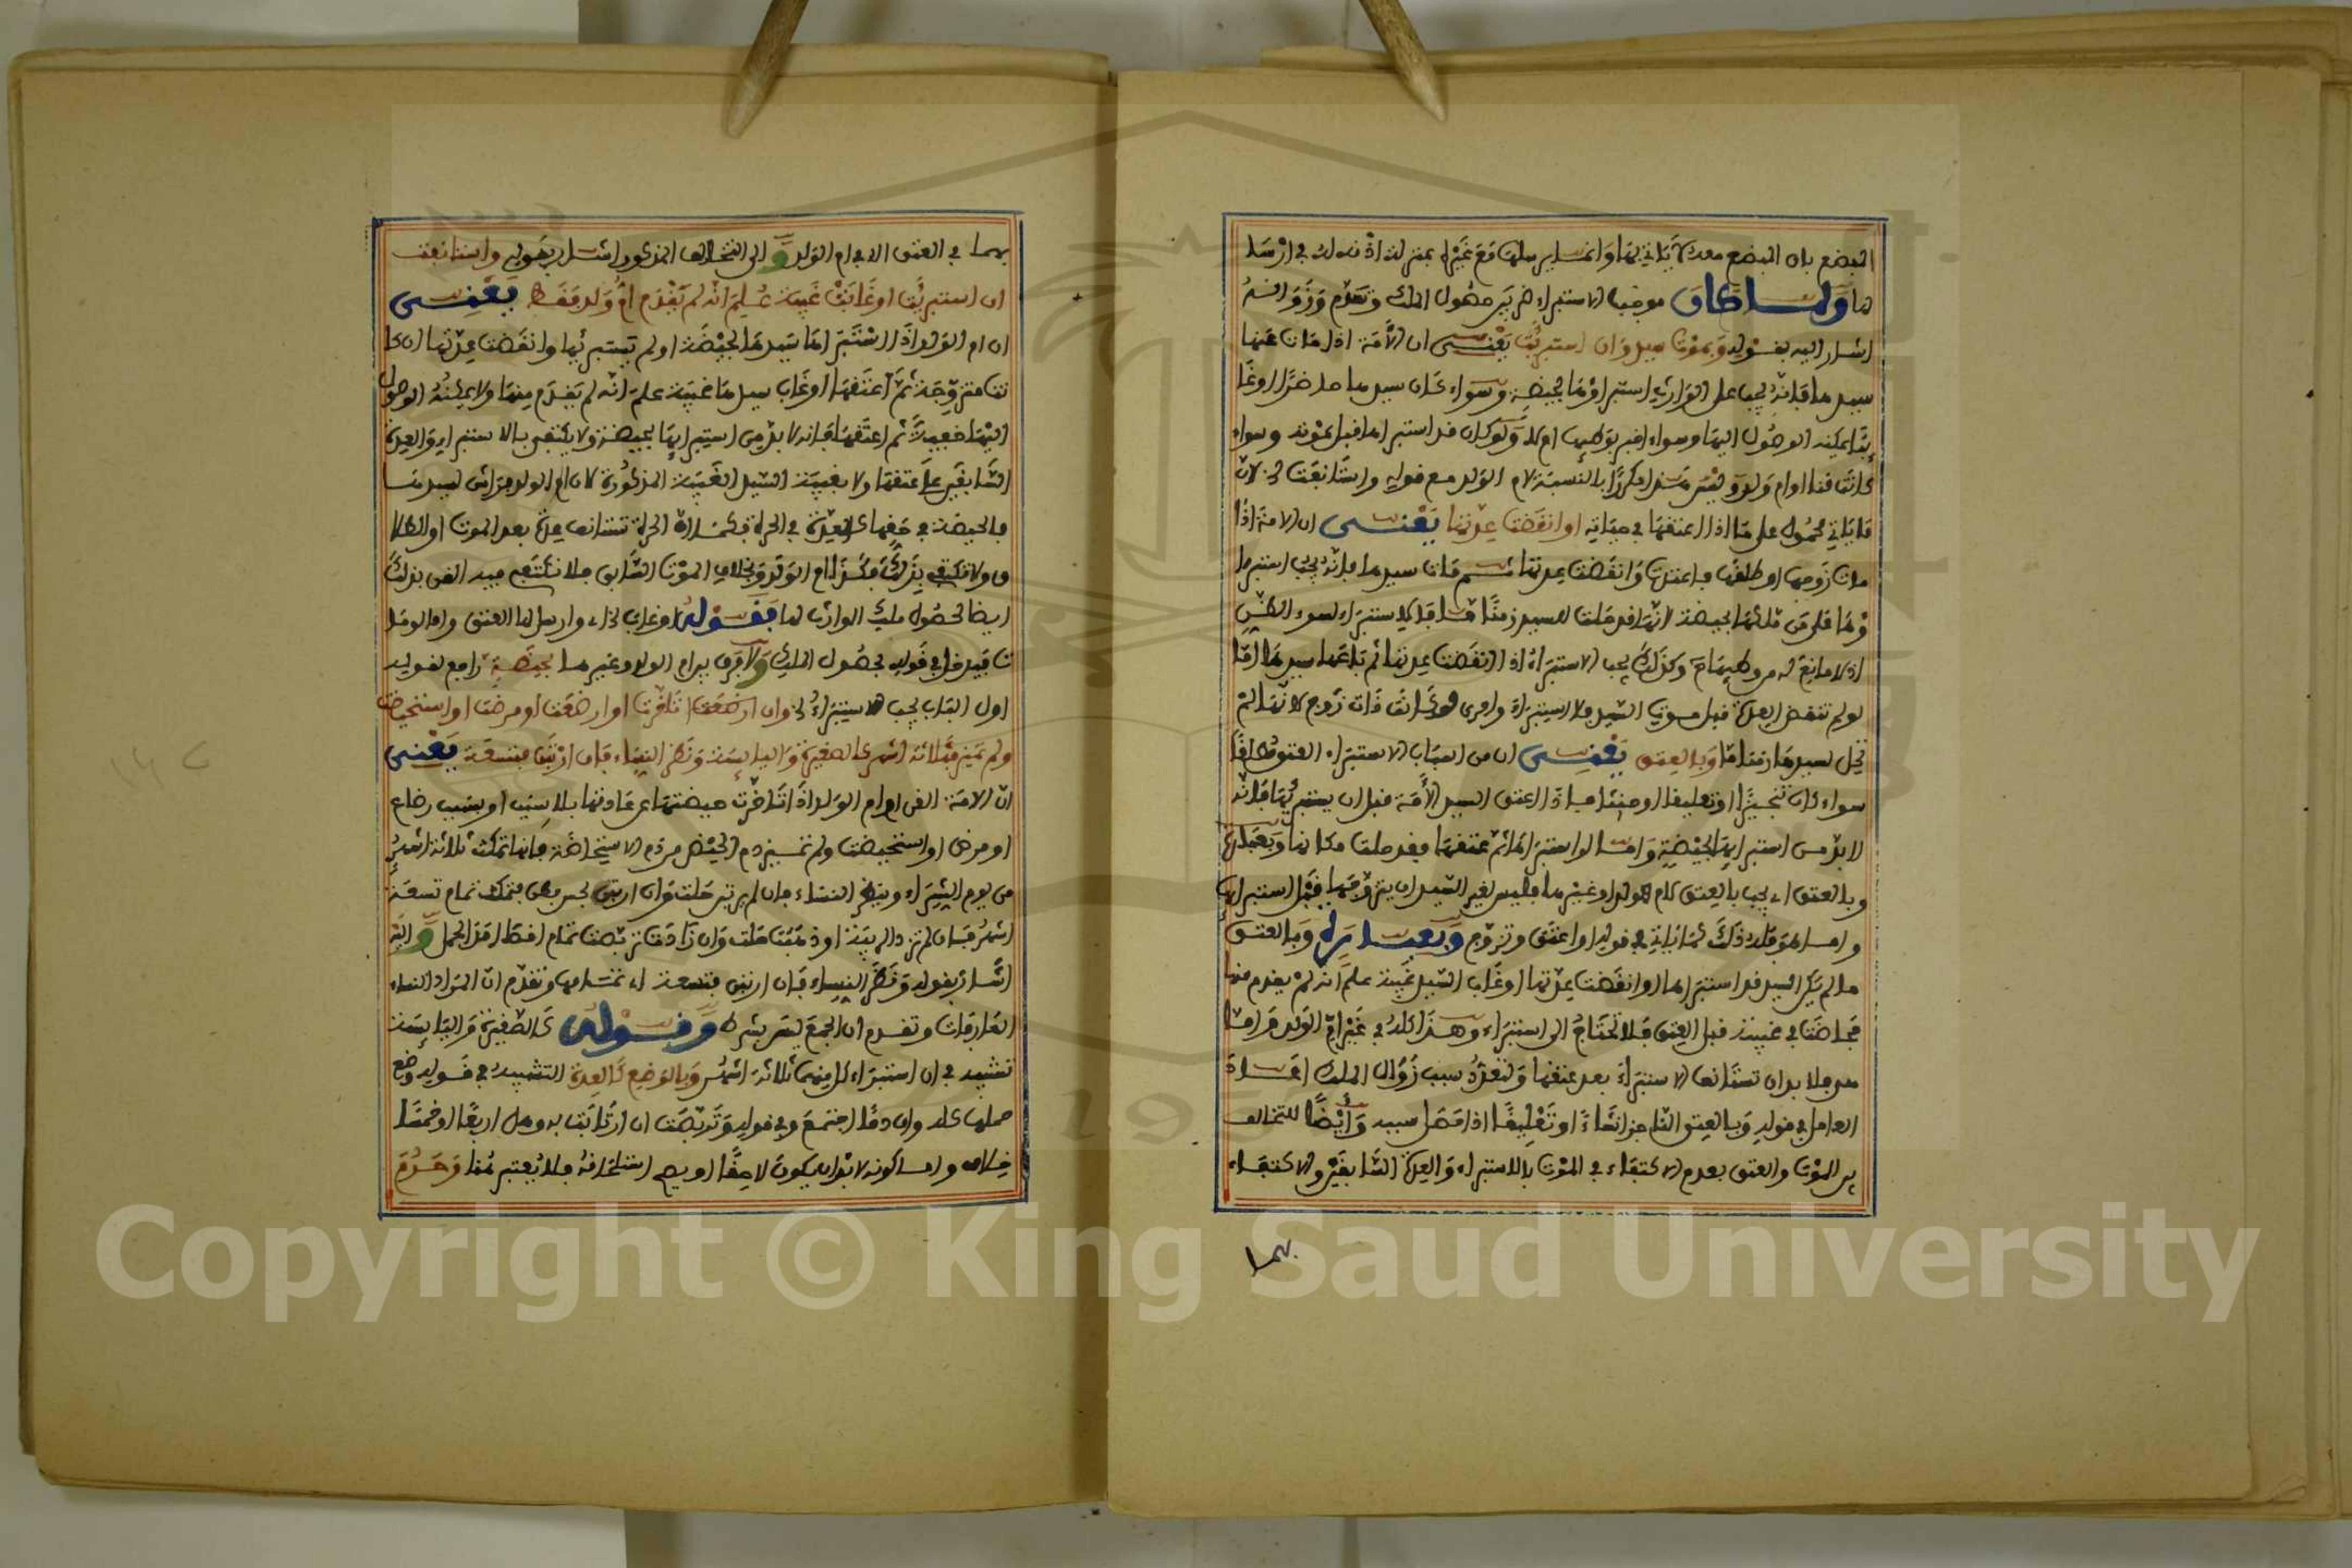 البضع بان البضع معه لا ياتي لها وانما يرسلها مع غيره بمنزلة اذنه له في ارسا
لها ولما كان موجب الاستبراء ضربين حصول الملك وتقدم وزواله
اشار اليه بقوله وبموت سيد وان استبرئت يعني ان الامة اذا مات عنها
سيدها فانه يجب على الوارث استبراؤها بحيضة وسواء كان سيدها حاضرا او غا
ئبا يمكنه الوصول اليها وسواء اقر بوطئها ام لا ولو كان قد استبراها قبل موته وسواء
كانت قنا او ام ولد وليس هذا مكررا بالنسبة لام الولد مع قوله واستانفت الخ لان
ما ياتي محمول على ما اذا اعتقها في حياته او انقضت عدتها يعني ان الامة اذا
مات زوجها او طلقها فاعتدت وانقضت عدتها ثم مات سيدها فانه يجب استبرا
ؤها على من ملكها بحيضة لانها قد حلت للسيد زمنا ما فالاستبراء لسوء الظن
اذ لا مانع له من وطئها وكذلك يجب الاستبراء اذا انقضت عدتها ثم باعها سيدها اما
لو لم تنقض العدة قبل موت السيد فلا استبراء واحرى لو كانت ذات زوج لانها لم
تحل لسيدها زمنا ما وبالعتق يعني ان من اسباب الاستبراء العتق مطلقا
سواء كان تنجيزا او تعليقا او حنثا فاذا اعتق السيد الامة قبل ان يستبرئها فانه
لا بد من استبرائها بحيضة واما لو استبراها ثم عتقها فقد حلت مكانها وبعبارة
وبالعتق اي يجب بالعتق لام الولد وغيرها فليس لغير السيد ان يتزوجها قبل استبرائها
واما هو فله ذلك كما ياتي في قوله او اعتق وتزوج وبعبارة وبالعتق
ما لم يكن السيد قد استبراها او انقضت عدتها او غاب السيد غيبة علم انه لم يقدم منها
فحاضت في غيبته قبل العتق فلا تحتاج الى استبراء وهذا كله في غير ام الولد واما
هي فلا بد ان تستانف الاستبراء بعد عتقها ولتعدد سبب زوال الملك اعاد
العامل في قوله وبالعتق الناجز انشاء او تعليقا اذا حصل سببه وايضا للتخالف
بين الموت والعتق بعدم الاكتفاء في الموت بالاستبراء والعدة السابقين والاكتفاء
بهما
بهما في العتق الا في ام الولد والى التخالف المذكور اشار بقوله واستانفت
ان استبرئت او غاب غيبة علم انه لم يقدم ام ولد فقط يعني
ان ام الولد اذا استبراها سيدها بحيضة او لم يستبرئها وانقضت عدتها ان كا
نت متزوجة ثم اعتقها او غاب سيدها غيبة علم انه لم يقدم منها ولا يمكنه الوصول
اليها خفية ثم اعتقها فانه لا بد من استبرائها بحيضة ولا يكتفى بالاستبراء والعدة
السابقين على عتقها ولا بغيبة السيد الغيبة المذكورة لان ام الولد فراش لسيدها
فالحيضة في حقها كالعدة في الحرة فكما ان الحرة تستانف عدة بعد الموت او الطلا
ق ولا تكتفي بذلك فكذا ام الولد وبخلاف الموت السابق فلا تكتفي فيه القن بذلك
ايضا لحصول ملك الوارث لها فقوله او غاب الخ اي وارسل لها العتق واما لو ما
ت فيدخل في قوله بحصول الملك ولا فرق بين ام الولد وغيرها بحيضة راجع لقوله
اول الباب يجب الاستبراء الخ وان ارضعت تاخرت او ارضعت او مرضت او استحيضت
ولم تميز فثلاثة اشهر كالصغيرة واليائسة ونظر النساء فان ارتبن فتسعة يعني
ان الامة القن او ام الولد اذا تاخرت حيضتها عن عادتها بلا سبب او بسبب رضاع
او مرض او استحيضت ولم تميز دم الحيض من دم الاستحاضة فانها تمكث ثلاثة اشهر
من يوم الشراء وينظر النساء فان لم يرتبن حلت وان ارتبن بحس بطن فتمكث تمام تسعة
اشهر فان لم تزد الريبة او ذهبت حلت وان زادت تربصت تمام اقصى امد الحمل واليه
اشار بقوله ونظر النساء فان ارتبن فتسعة اي تمامها وتقدم ان المراد النساء
العارفات وتقدم ان الجمع ليس بشرط وقوله كالصغيرة واليائسة
تشبيه في ان استبراء كل منهما ثلاثة اشهر وبالوضع كالعدة التشبيه في قوله وضع
حملها كله وان دما اجتمع وفي قوله وتربصت ان ارتابت به وهل اربعا او خمسا
خلاف واما كونه لا بد ان يكون لاحقا او يصح استلحاقه فلا يعتبر هنا وحرم